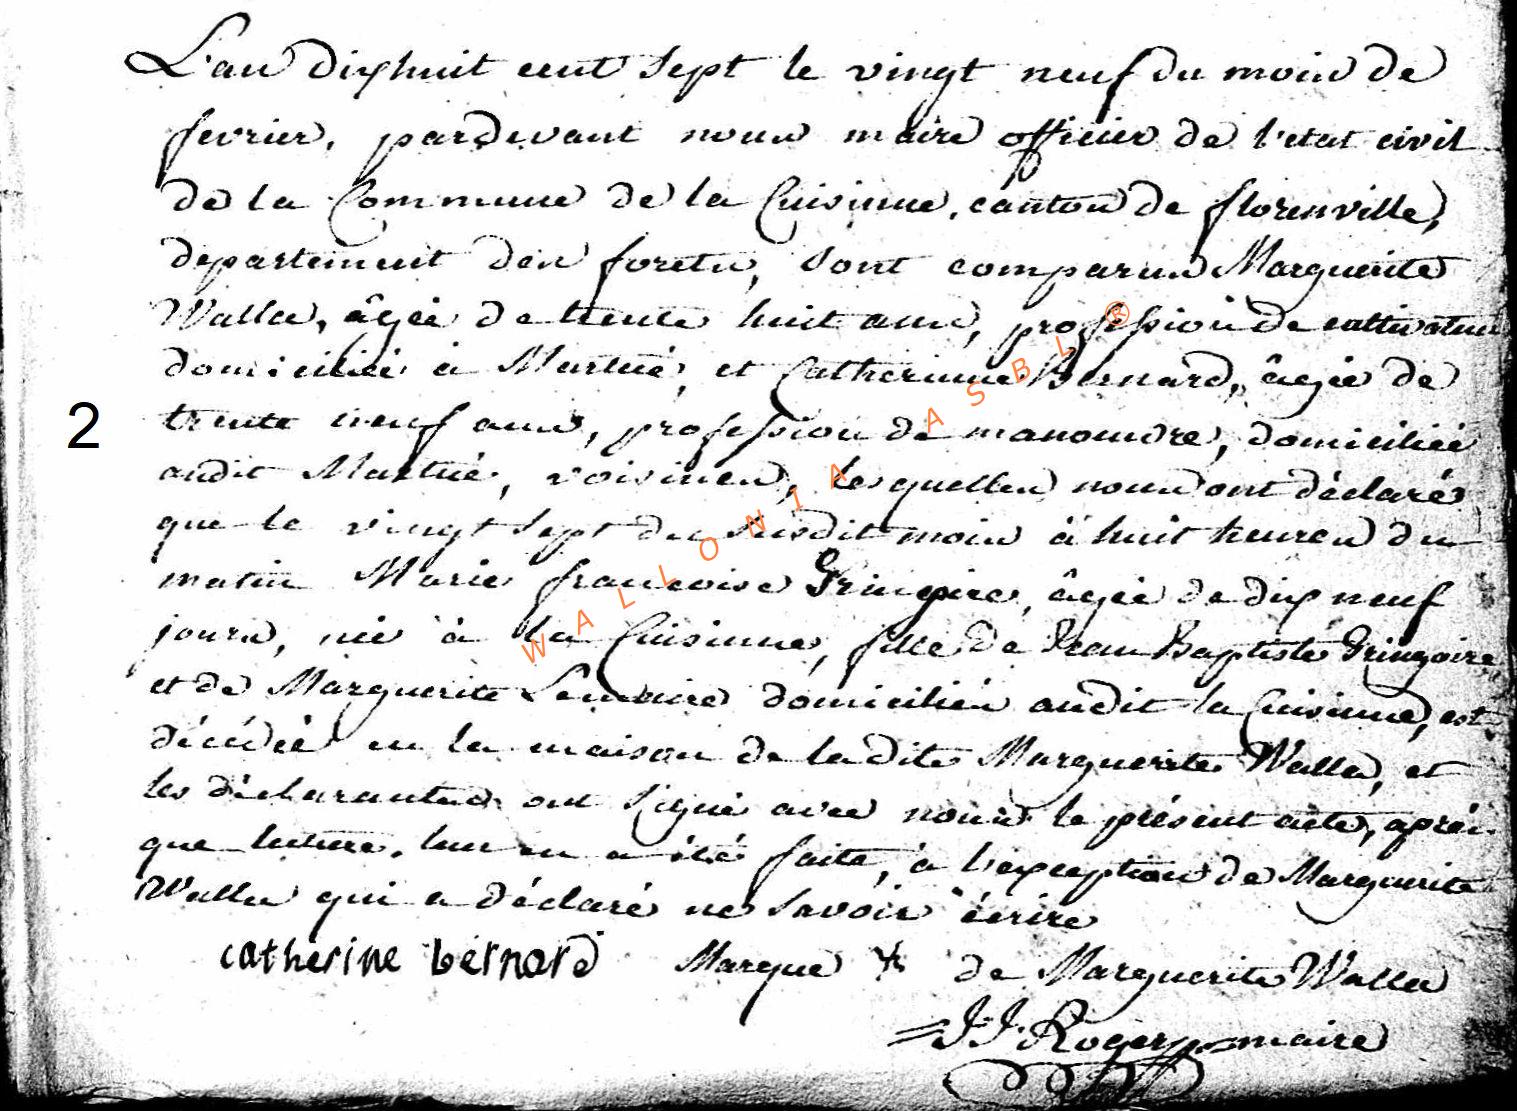 L'an dixhuit cent sept le vingt neuf du mois de
fevrier, pardevant nous maire officier de l'etat civil
de la Commune de la Cuisinne, canton de florenville,
departement des forets, sont comparus Marguerite
Walla, âgée de trente huit ans, profession de cultivateur
domiciliée à Martué, et Catherinne Bernard, âgée de
2 trente neuf ans, profession de manouvre, domiciliée
audit Martué, voisines, lesquelles nous ont déclaré
que le vingt sept du susdit mois à huit heures du
matin Marie francoise Gringoire, âgée de dix neuf
jours, née à la Cuisinne, fille de Jean Baptiste Gringoire
et de Marguerite Lemaire domiciliés audit la Cuisinne, est
décédée en la maison de ladite Marguerite Walla, et
les déclarantes ont signé avec nous le présent acte, après
que lecture leur en a été faite, à l'exception de Marguerite
Walla qui a déclaré ne savoir écrire
catherine bernard Marque de Marguerite Walla
J.J. Roger maire
WALLONIA ASBL ®